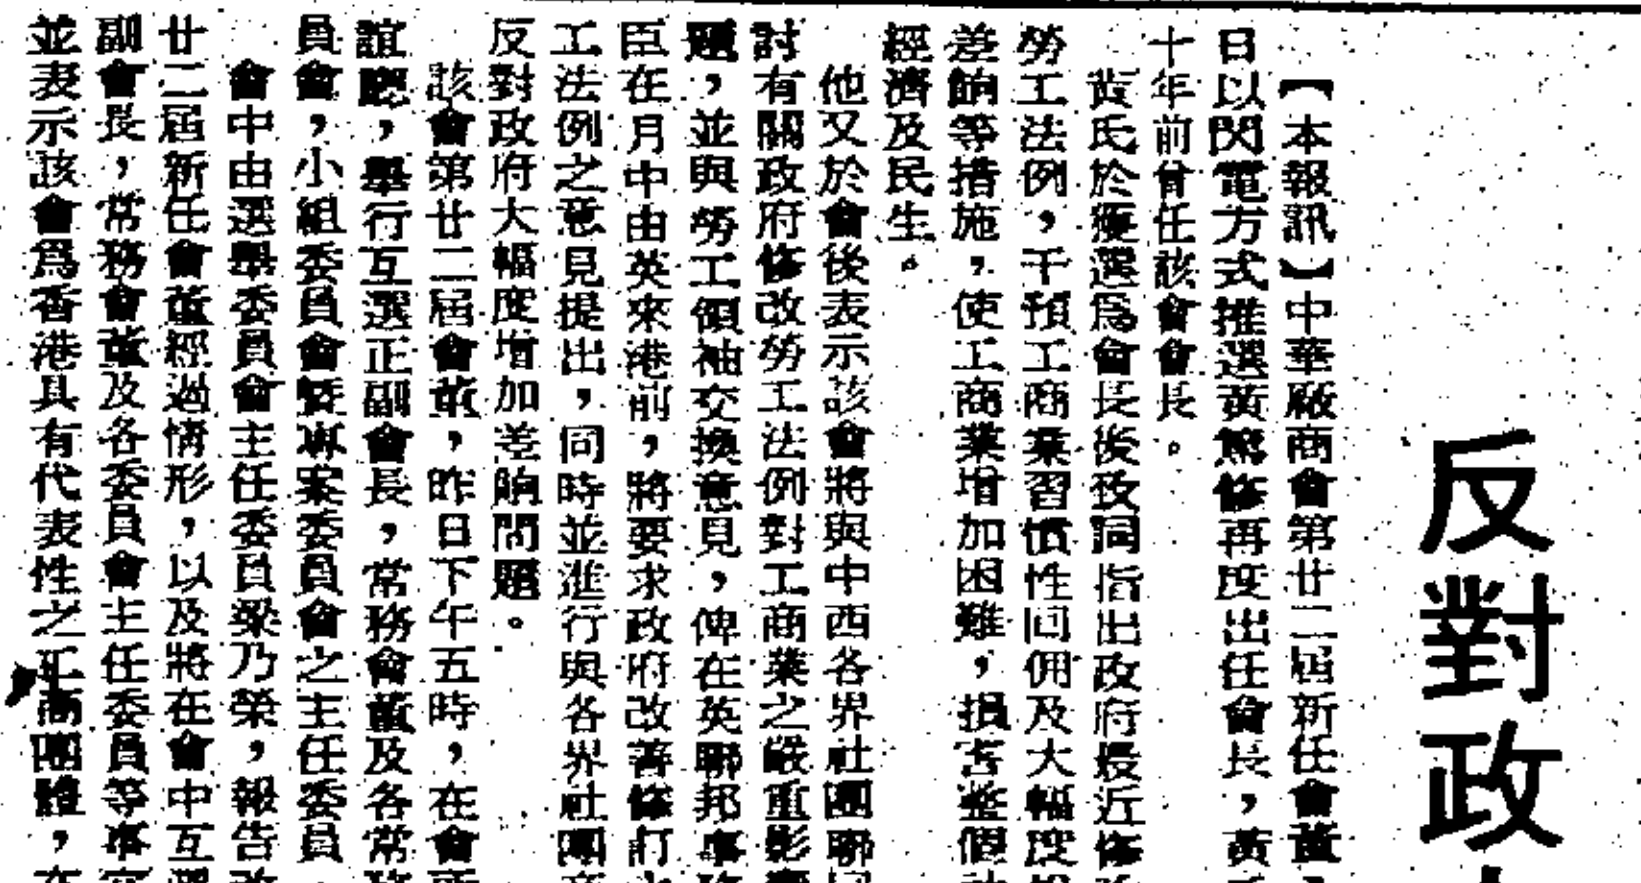 反對政
【本報訊】中華廠商會第廿二屆新任會董，
日以閃電方式推選黃篤修再度出任會長，黃
十年前曾任該會會長。
黃氏於獲選爲會長後致詞指出政府最近修
勞工法例，干預工商業習慣性回佣及大幅度
差餉等措施，使工商業增加困難，損害整個
經濟及民生。
他又於會後表示該會將與中西各界社團聯
討有關政府修改勞工法例對工商業之嚴重影響
題，並與勞工領袖交換意見，俾在英聯邦事務
臣在月中由英來港前，將要求政府改善修訂
工法例之意見提出，同時並進行與各界社團
反對政府大幅度增加差餉問題。
該會第廿二屆會董，昨日下午五時，在會所
誼廳，舉行互選正副會長，常務會董及各常務
員會，小組委員會暨專案委員會之主任委員。
會中由選舉委員會主任委員梁乃榮，報告
廿二屆新任會董經過情形，以及將在會中互選
副會長，常務會董及各委員會主任委員等事宜
並表示該會爲香港具有代表性之工商團體，在